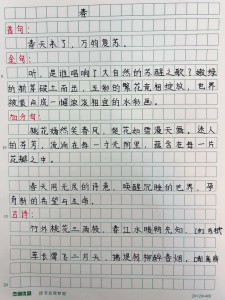 春
首句:
春天来了,万物复苏。
金句:
听,是谁唱响了大自然的苏醒之歌?嫩绿
的新芽破土而出,五彩的繁花竞相绽放,世界
被晕染成一幅浓淡相宜的水彩画。
加分句:
桃花嫣然笑春风,梨花如雪漫天飘。迷人
的芬芳,流淌在每一寸光阴里,蕴含在每一片
花瓣之中。
春天用无尽的诗意,唤醒沉睡的世界,孕
育新的希望与生命。
古诗:
竹外桃花三两枝,春江水暖鸭先知。
草长莺飞二月天,拂堤杨柳醉春烟。